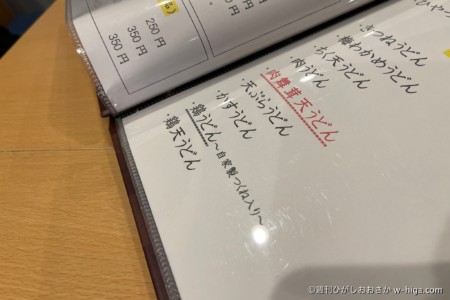 250円
350円
350円
円
円
ひやっ
・きつねうどん
・梅わかめうどん
・ちく天うどん
・肉うどん
・肉舞茸天うどん
・天ぷらうどん
・かすうどん
・鶏うどん〜自家製つくね入り〜
・鶏天うどん
©週刊ひがしおおさか w-higa.com